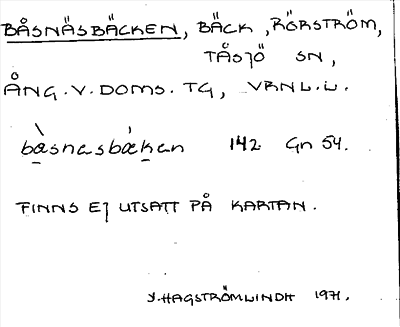 BÅSNÄSBÄCKEN, BÄCK, RÖRSTRÖM,
TÅSJÖ SN,
ÅNG. V. DOMS. TG, VRNL.L.
bæsnasbækan 142 Gn 54.
FINNS EJ UTSATT PÅ KARTAN.
Y. HAGSTRÖMLINDH 1971.